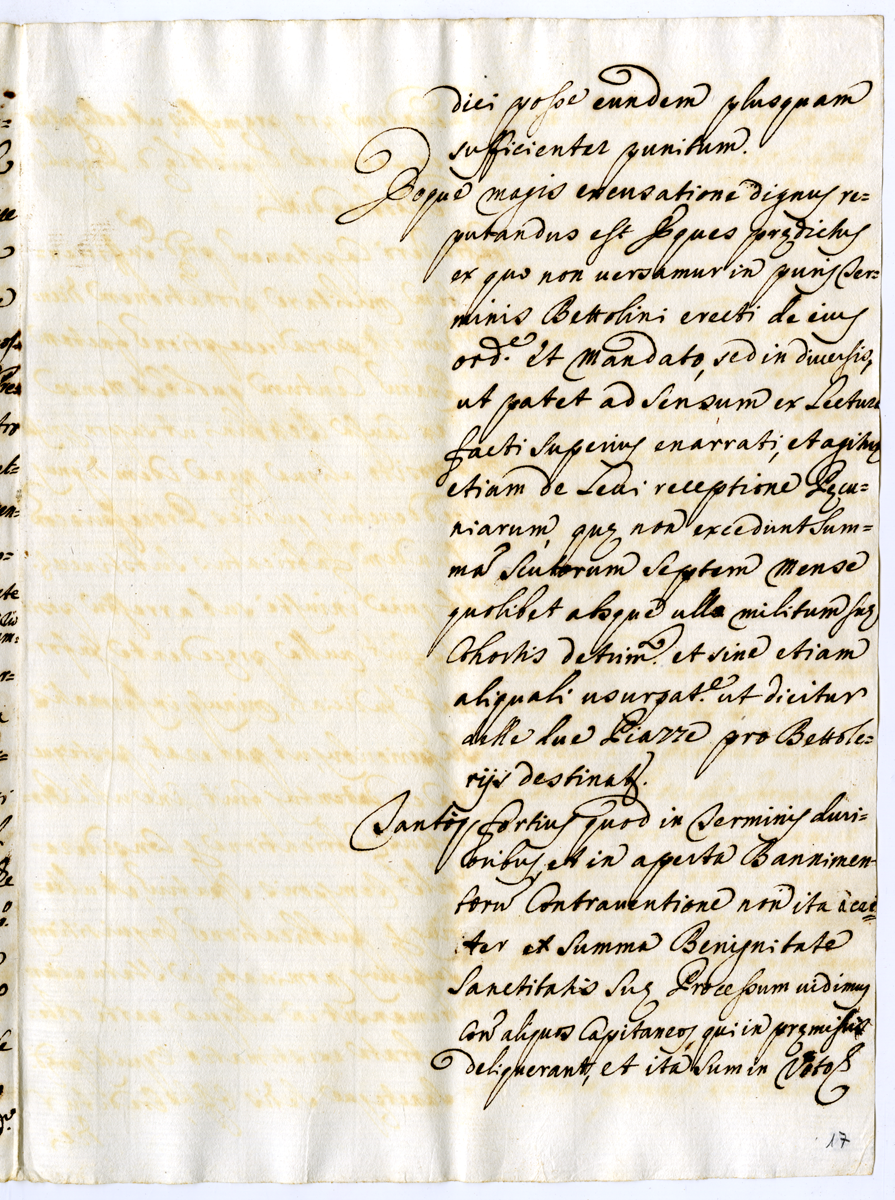 dici posse eundem plusquam
sufficienter punitum.
Eoque magis excusatione dignus re=
putandus est Eques prędictus
ex quo non versamur in puris Ter=
minis Bettolini erecti de eius
ord.e et Mandato, sed in diversis,
ut patet ad sensum ex Lectura
facti superius enarrati, et agitur
etiam de Levi receptione Pecu=
niarum, quę non excedunt sum=
mã scutorum septem mense
quolibet absque ulla militum suę
Cohortis detrim.o et sine etiam
aliquali usurpat.e ut dicitur
delle due Piazze pro Bettole=
rijs destinatę.
Tantoq fortius quod in Terminis duri=
oribus, et in aperta Bannimen=
torũ Contraventione non ita
ter ex summa Benignitate
Sanctitatis Suę Processum vidimus
con aliquos Capitaneos, qui in pręmissis
deliquerant, et ita sum in Voto
17